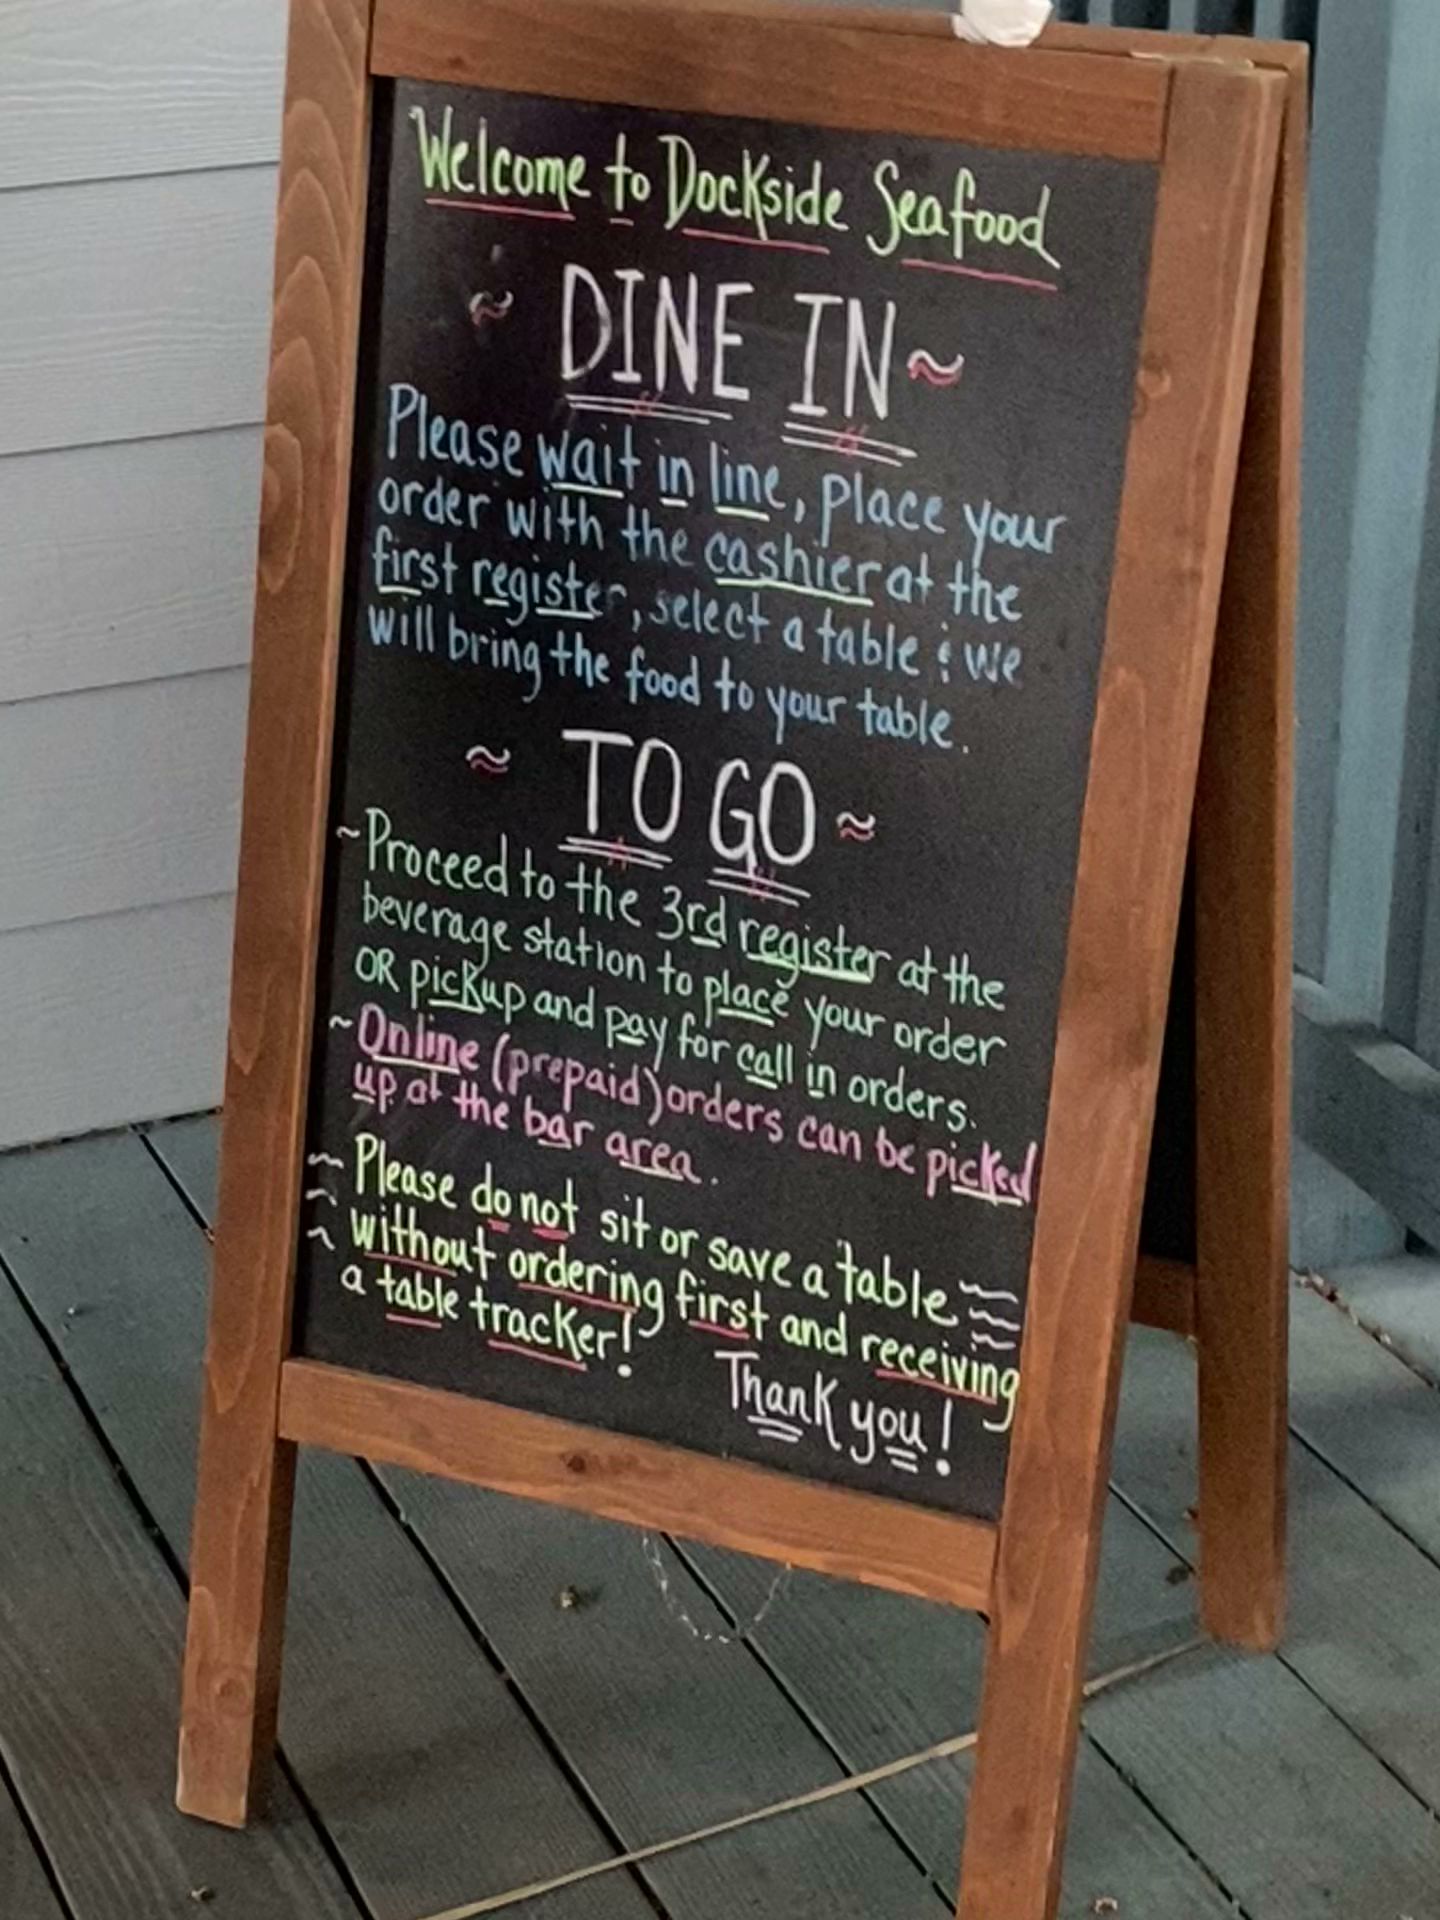 Welcome to Dockside Seafood
~ DINE IN ~
Please wait in line, place your
order with the cashier at the
first register, select a table & we
will bring the food to your table.
~ TO GO ~
~Proceed to the 3rd register at the
beverage station to place your order
OR pickup and pay for call in orders.
~Online (prepaid) orders can be picked
up at the bar area.
Please do not sit or save a table
without ordering first and receiving
a table tracker!
Thank you!